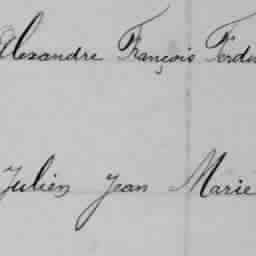 Alexandre François Ferdi
Julien Jean Marie